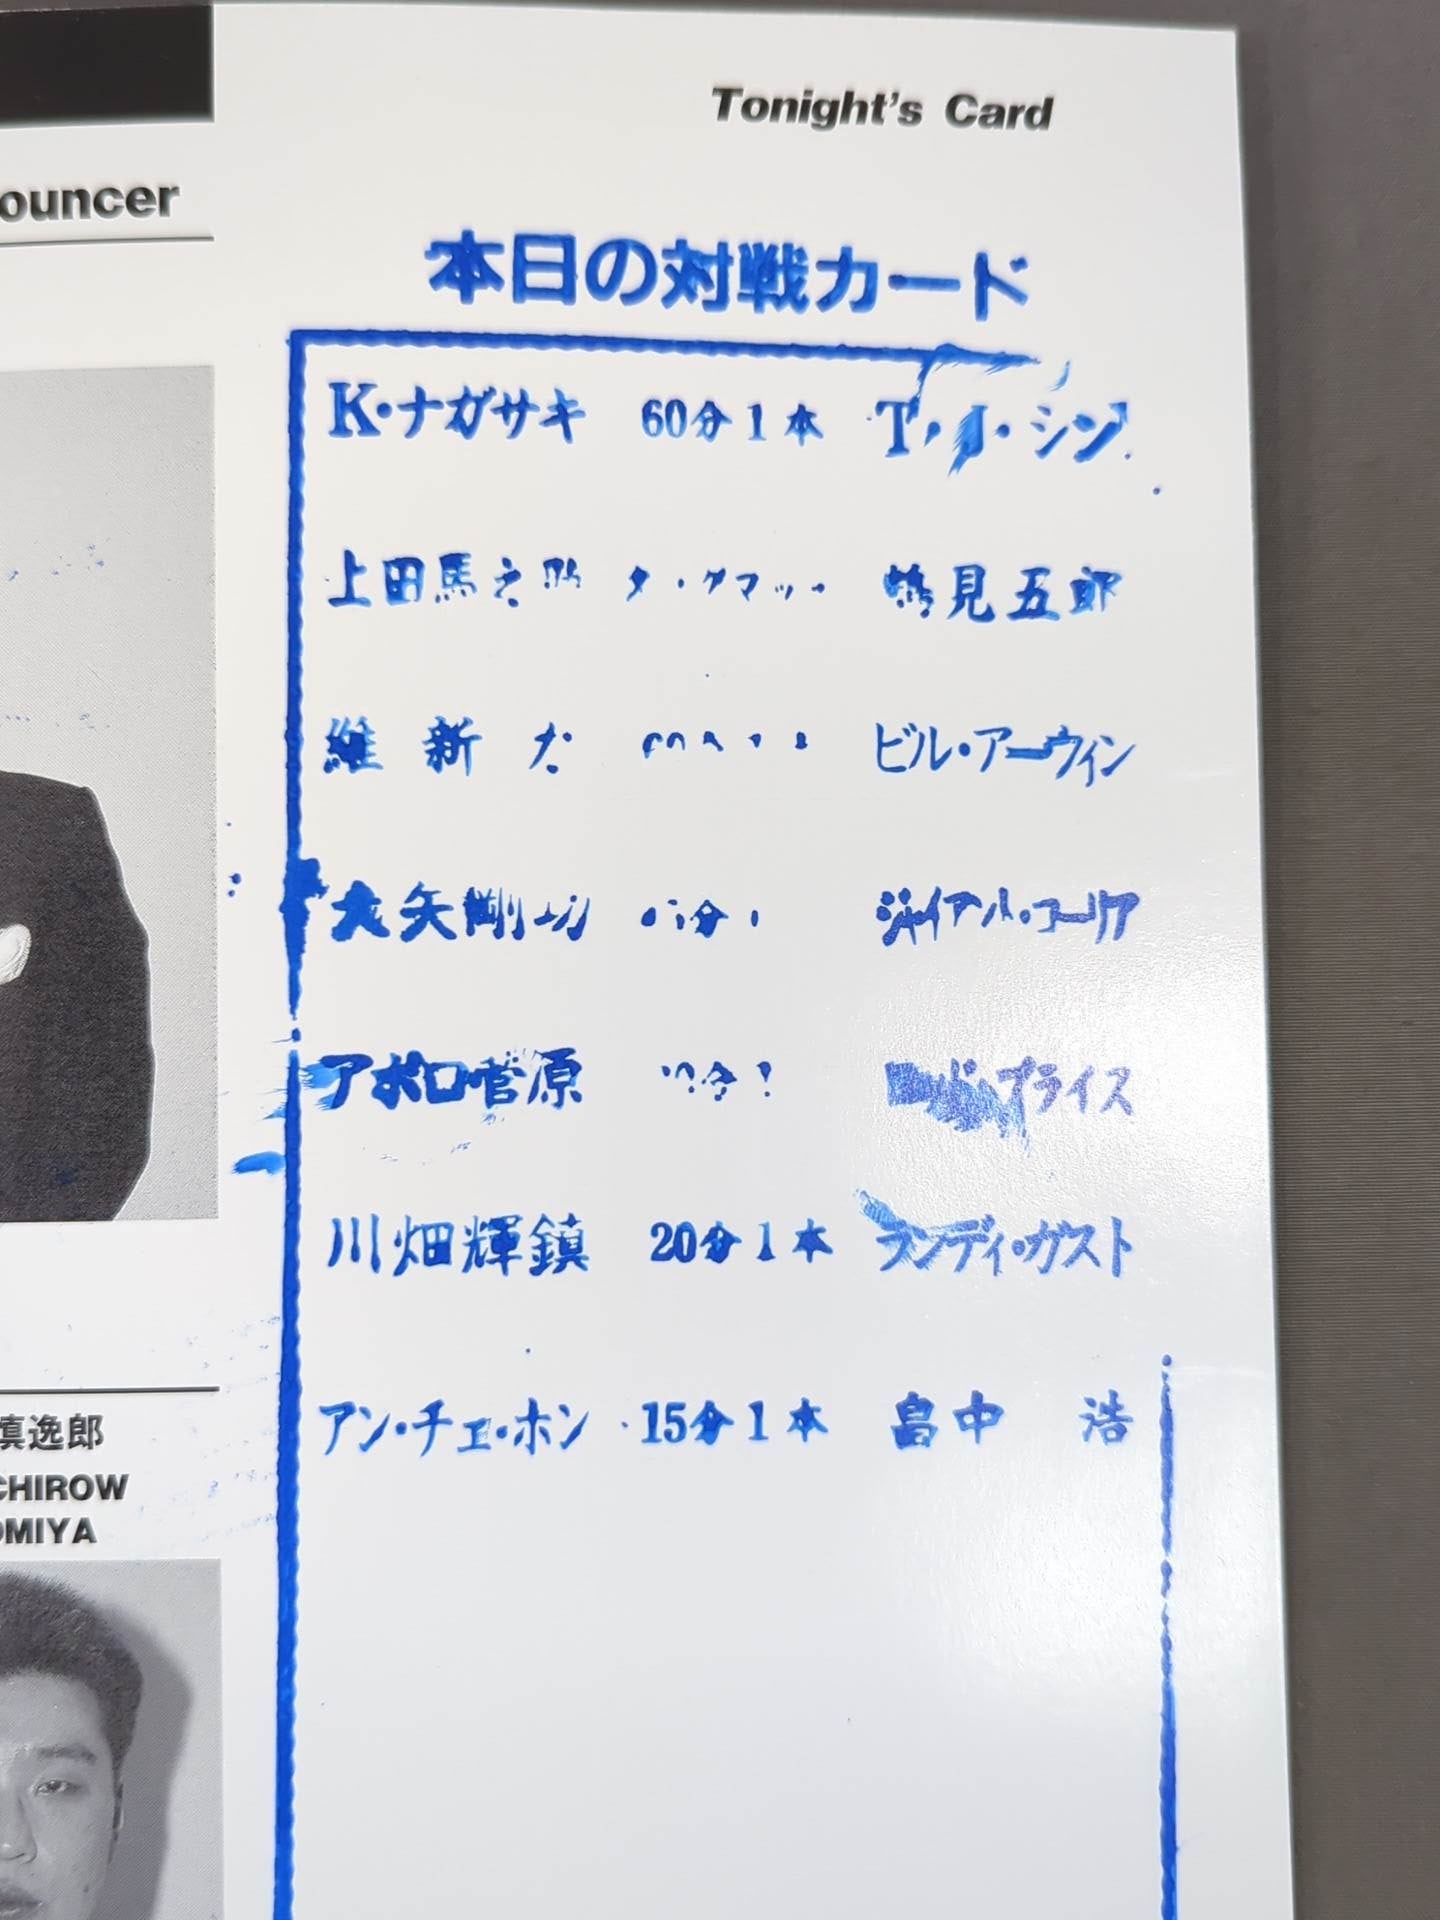 Tonight's Card
ouncer
本日の対戦カード
K・ナガサキ 60分1本 T・J・シン
上田馬之助 鶴見五郎
維新力 ビル・アーウィン
大矢剛功 ジャイアル・コーリア
アポロ菅原 プライス
川畑輝鎮 20分1本 ランディ・ガスト
アン・チェ・ホン 15分1本 畠中 浩
慎逸郎
CHIROW
OMIYA